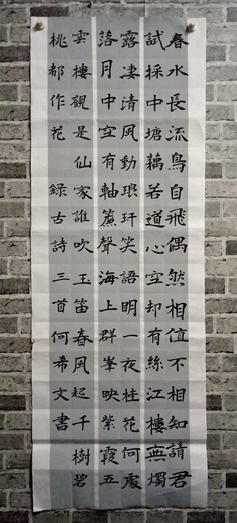 春水長流鳥自飛偶然相值不相知請君
試採中塘藕若道心空却有絲江樓無燭
露凄清風動琅玕笑語明一夜桂花何處
落月中空有軸簾聲海上群峯映紫霞五
雲樓觀是仙家誰吹玉笛春風起千樹碧
桃都作花 錄古詩三首何希文書